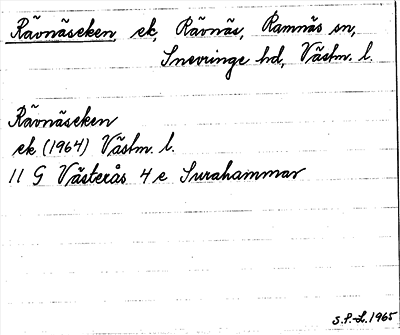 Rävnäseken, ek, Rävnäs, Ramnäs sn,
Snevringe hd, Västm. l.
Rävnäseken
ek (1964) Västm. l.
11 G Västerås 4 e Surahammar
S.P.-L. 1965